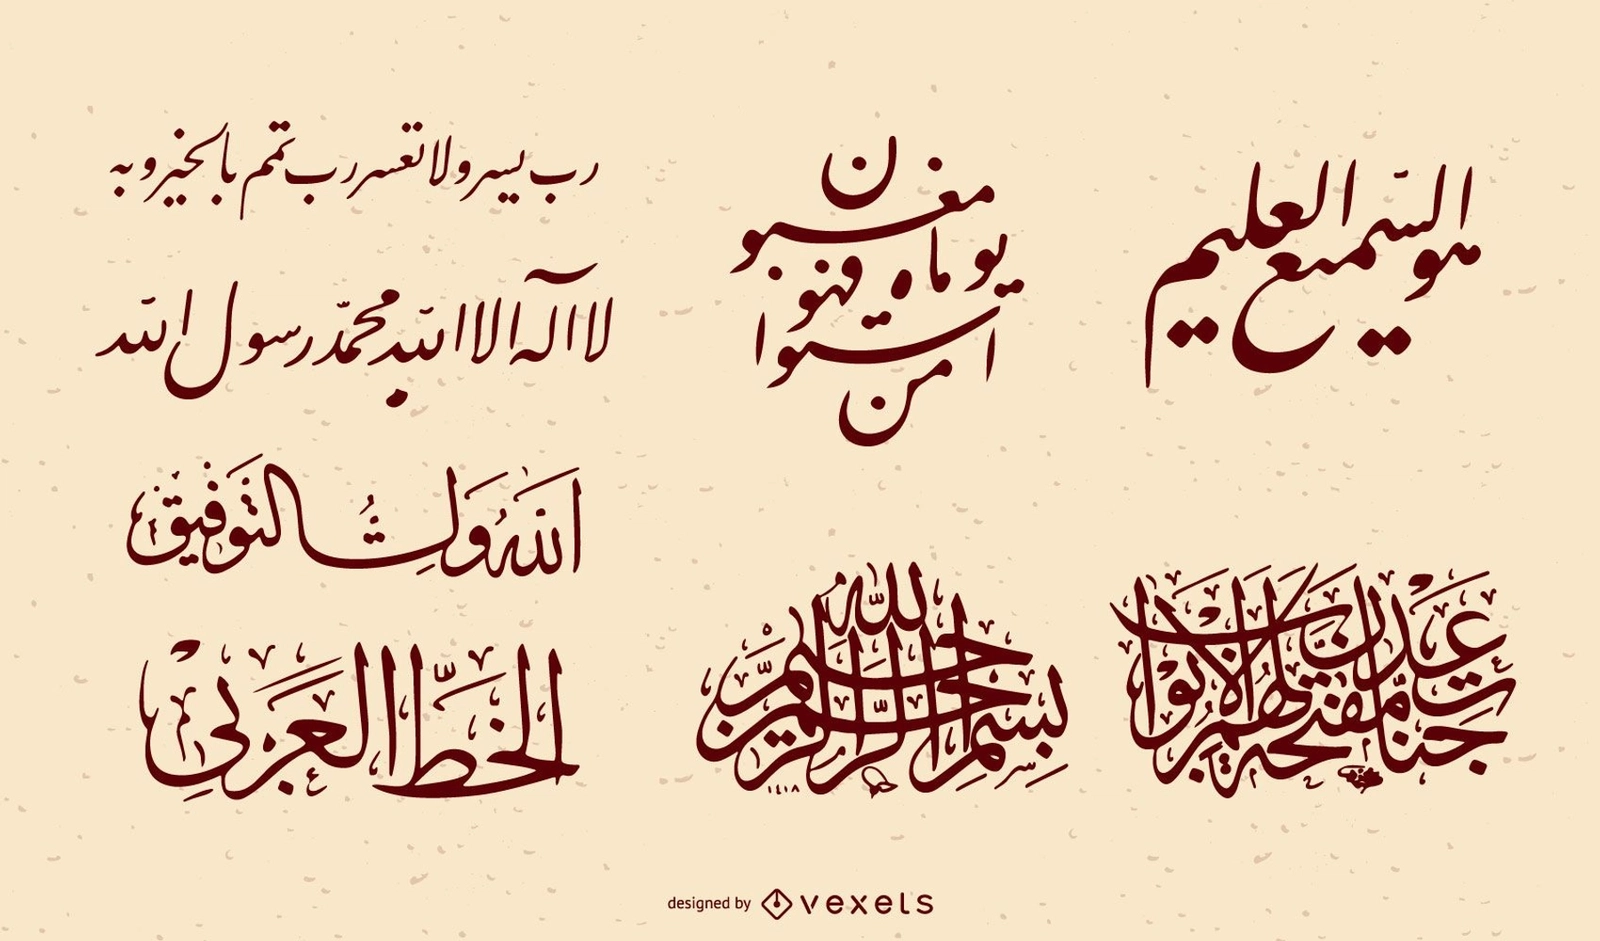 رب يسر ولا تعسر رب تمم بالخير وبه
لا اله الا الله محمد رسول الله
الله ولي التوفيق
الخط العربي
من استوا يوماه فهو مغبون
هو السميع العليم
بسم الله الرحمن الرحيم
١٤١٨
جنات عدن مفتحة لهم الابواب
designed by vexels